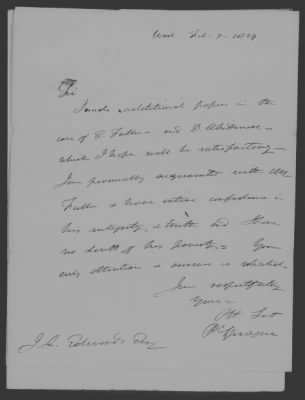 Wash. Feb. 7. 1829
Sir
I send additional papers in the
case of E. Fuller and D.
which I hope will be satisfactory
I am personally acquainted with Mr
Fuller & have entire confidence in
his integrity & truth and have
no doubt of his poverty. Your
early attention & success is solicited.
I am respectfully
Your
Ob Svt
P. Sprague
J. L. Edwards Esq